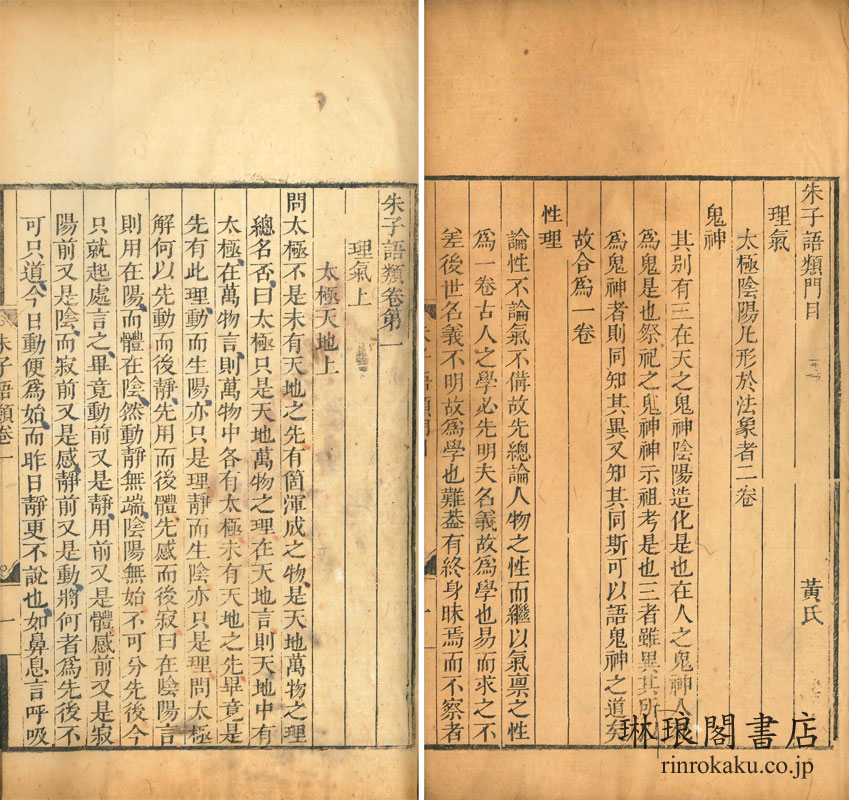 朱子語類門目　黃氏
理氣
太極陰陽凡形於法象者二卷
鬼神
其別有三在天之鬼神陰陽造化是也在人之鬼神人
為鬼是也祭祀之鬼神神示祖考是也三者雖異其所
為鬼神者則同知其異又知其同斯可以語鬼神之道矣
故合爲一卷
性理
論性不論氣不備故先總論人物之性而繼以氣禀之性
爲一卷古人之學必先明夫名義故爲學也易而求之不
差後世名義不明故爲學也難葢有終身昧焉而不察者
朱子語類卷第一
理氣上
太極天地上
問太極不是未有天地之先有箇渾成之物是天地萬物之理
總名否曰太極只是天地萬物之理在天地言則天地中有
太極在萬物言則萬物中各有太極未有天地之先畢竟是
先有此理動而生陽亦只是理靜而生陰亦只是理問太極
解何以先動而後靜先用而後體先感而後寂曰在陰陽言
則用在陽而體在陰然動靜無端陰陽無始不可分先後今
只就起處言之畢竟動前又是靜用前又是體感前又是寂
陽前又是陰而寂前又是感靜前又是動將何者爲先後不
可只道今日動便爲始而昨日靜更不說也如鼻息言呼吸
朱子語類卷一
一
琳琅閣書店
rinrokaku.co.jp